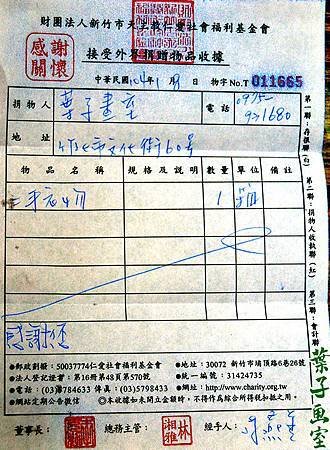 財團法人新竹市天主教仁愛社會福利基金會
感謝
關懷
接受外界捐贈物品收據
中華民國 年1月 日 物字No.T 011665
捐物人 葉子畫室 電話
地址 竹北市文化街60號
物品名稱 規格及說明 數量 單位 備註
二手衣物 1 箱
感謝您
第一聯：存根聯(白)
第二聯：捐物人收執聯(紅)
第三聯：會計聯
●郵政劃撥：50037774仁愛社會福利基金會
●地址：30072 新竹市埔頂路6巷26號
●法人登記證書：第16冊第48頁第570號
●統一編號：31424735
●電話：(03)5784633 傳真：(03)5798433
●網址：http://www.charity.org.tw
●網站定期公告徵信
◎本收據如未開立金額時，不得作為綜合所得稅扣抵之用。
董事長：
總務主管：
林湘雅
經手人：
葉子畫室